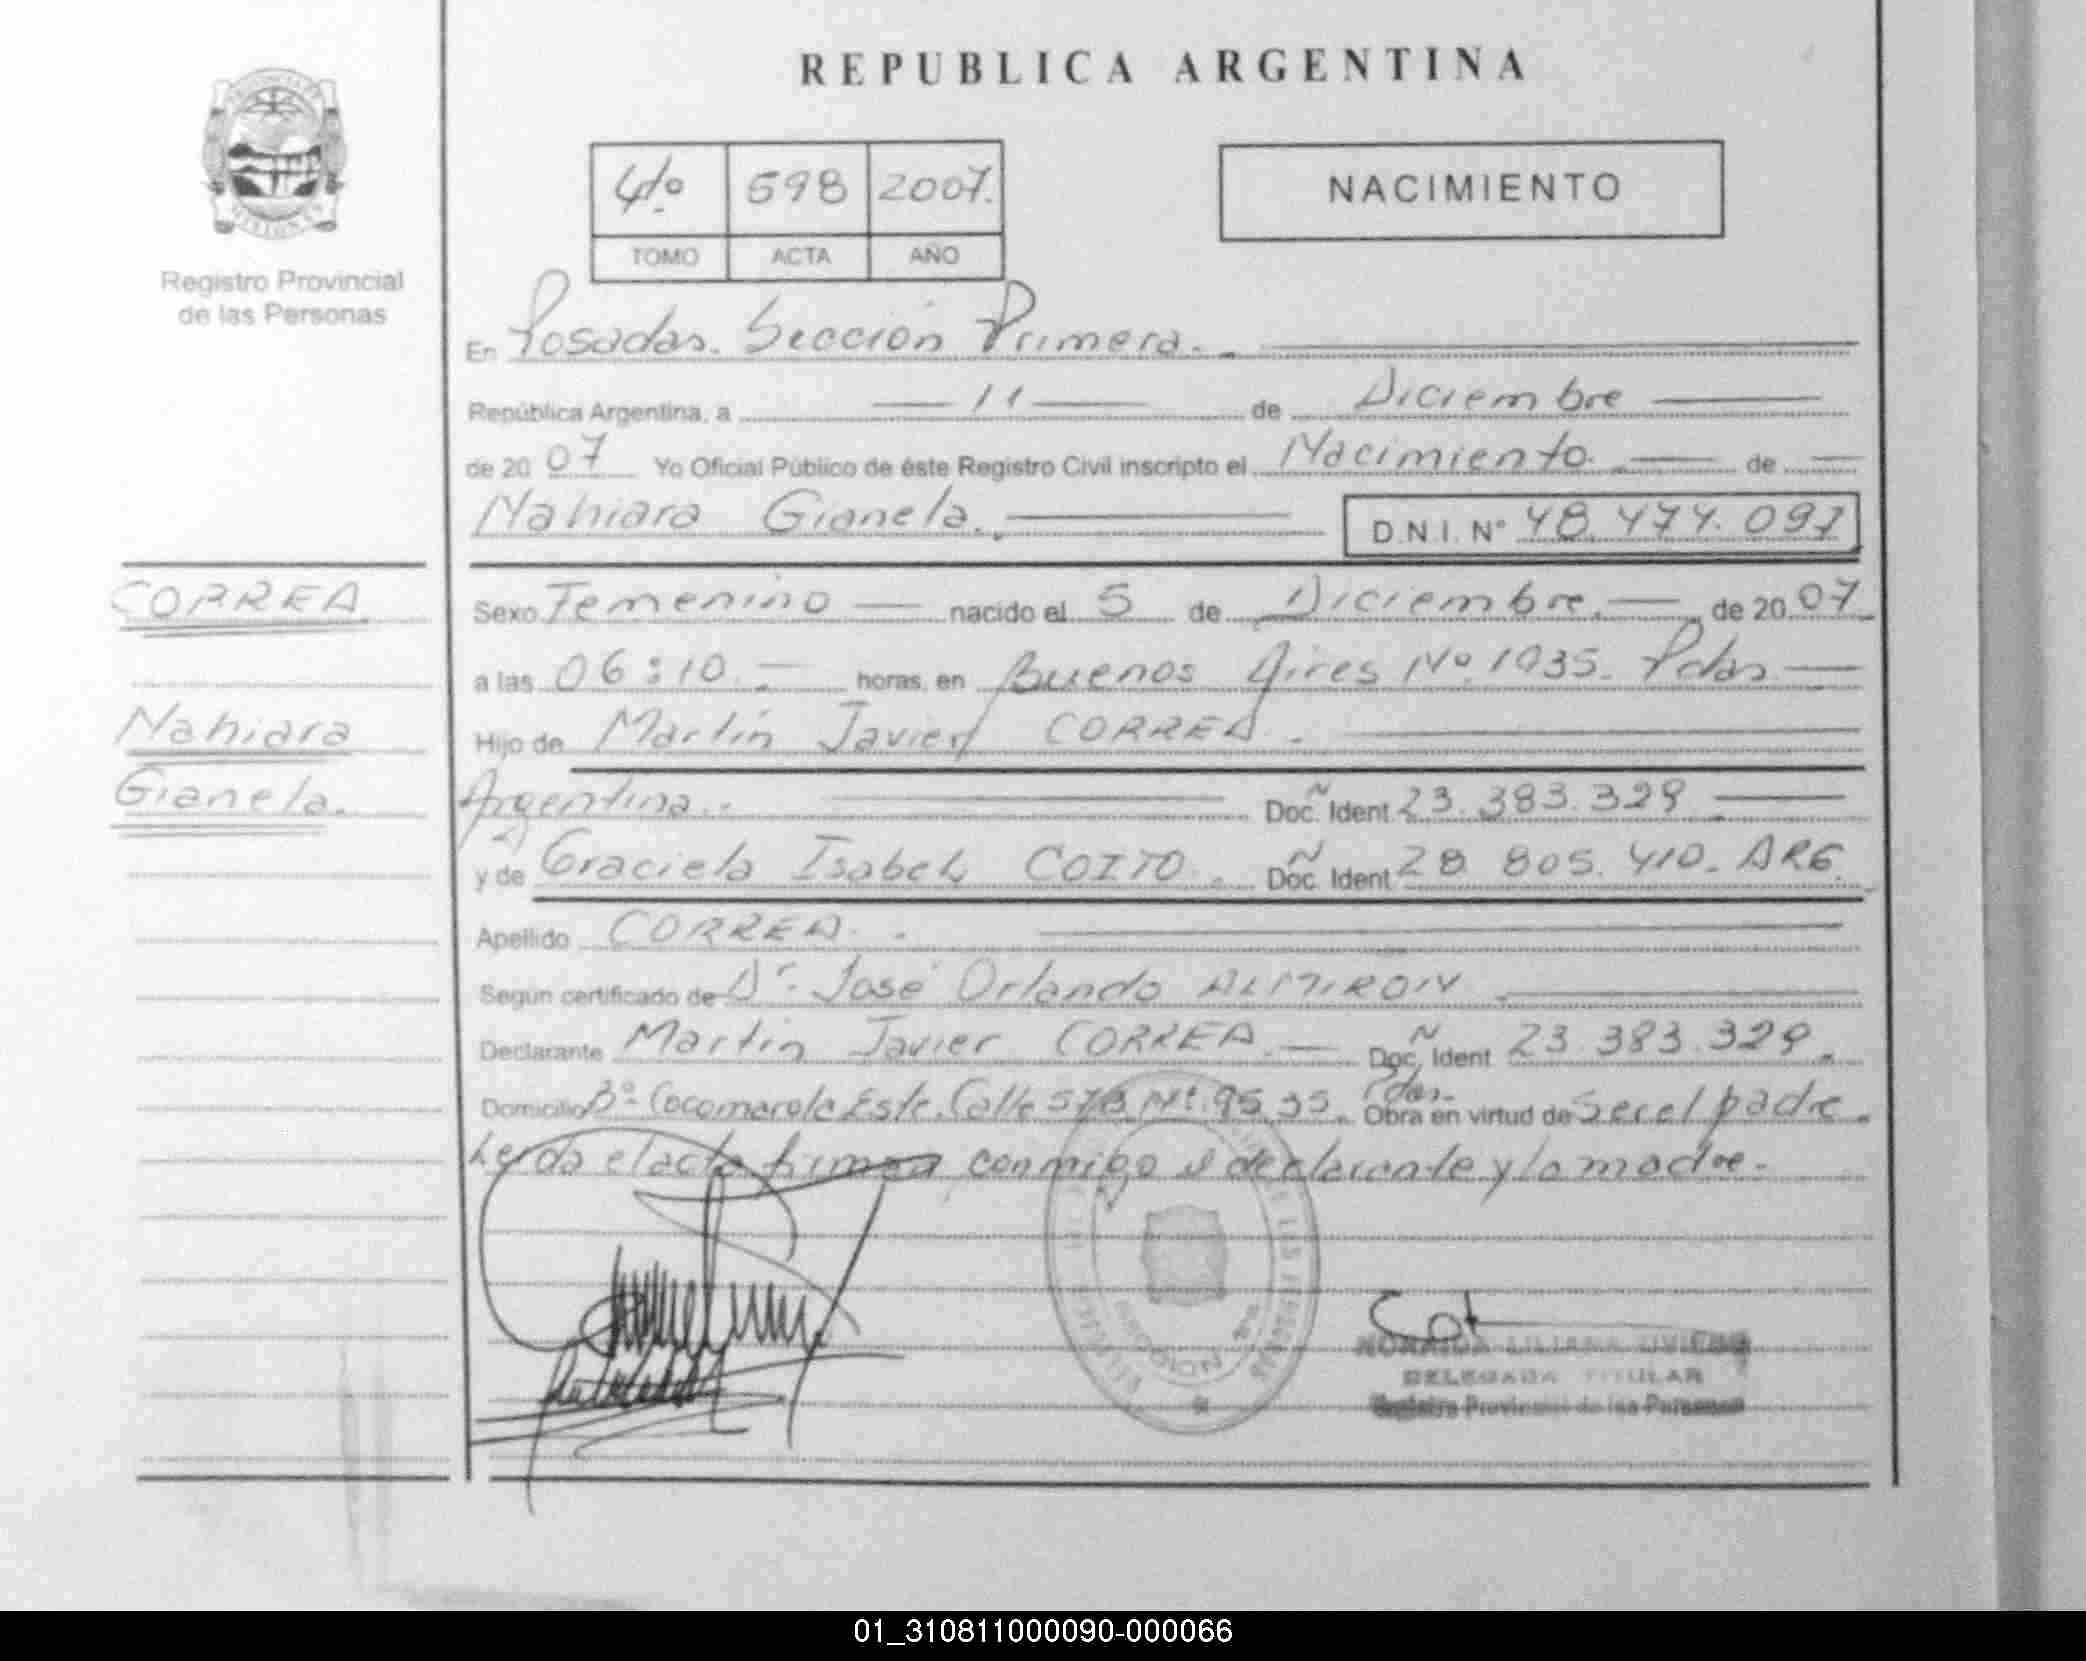 REPUBLICA ARGENTINA
4to 598 2007.
TOMO ACTA AÑO
NACIMIENTO
Registro Provincial
de las Personas
En Posadas. Sección Primera.
República Argentina, a 11 de Diciembre
de 2007 Yo Oficial Público de éste Registro Civil inscripto el Nacimiento de
Nahiara Gianela. D.N.I. N° 48.474.097
CORREA
Nahiara
Gianela.
Sexo Femenino nacido el 5 de Diciembre. de 2007
a las 06:10 horas, en Buenos Aires Nº 1035. Pdas
Hijo de Martín Javier CORREA.
Argentina. Doc. Ident. 23.383.329
y de Graciela Isabel COITO. Doc. Ident. 28.805.410. ARG.
Apellido CORREA.
Según certificado de Dr. José Orlando ALMIRON
Declarante Martín Javier CORREA. Doc. Ident. 23.383.329.
Domicilio Bº Cocomarola Este. Calle Nº 9535. Pdas. Obra en virtud de Ser el padre.
Leída el acta firman conmigo el declarante y la madre.
LILIANA
DELEGADA TITULAR
Registro Provincial de las Personas
01_310811000090-000066